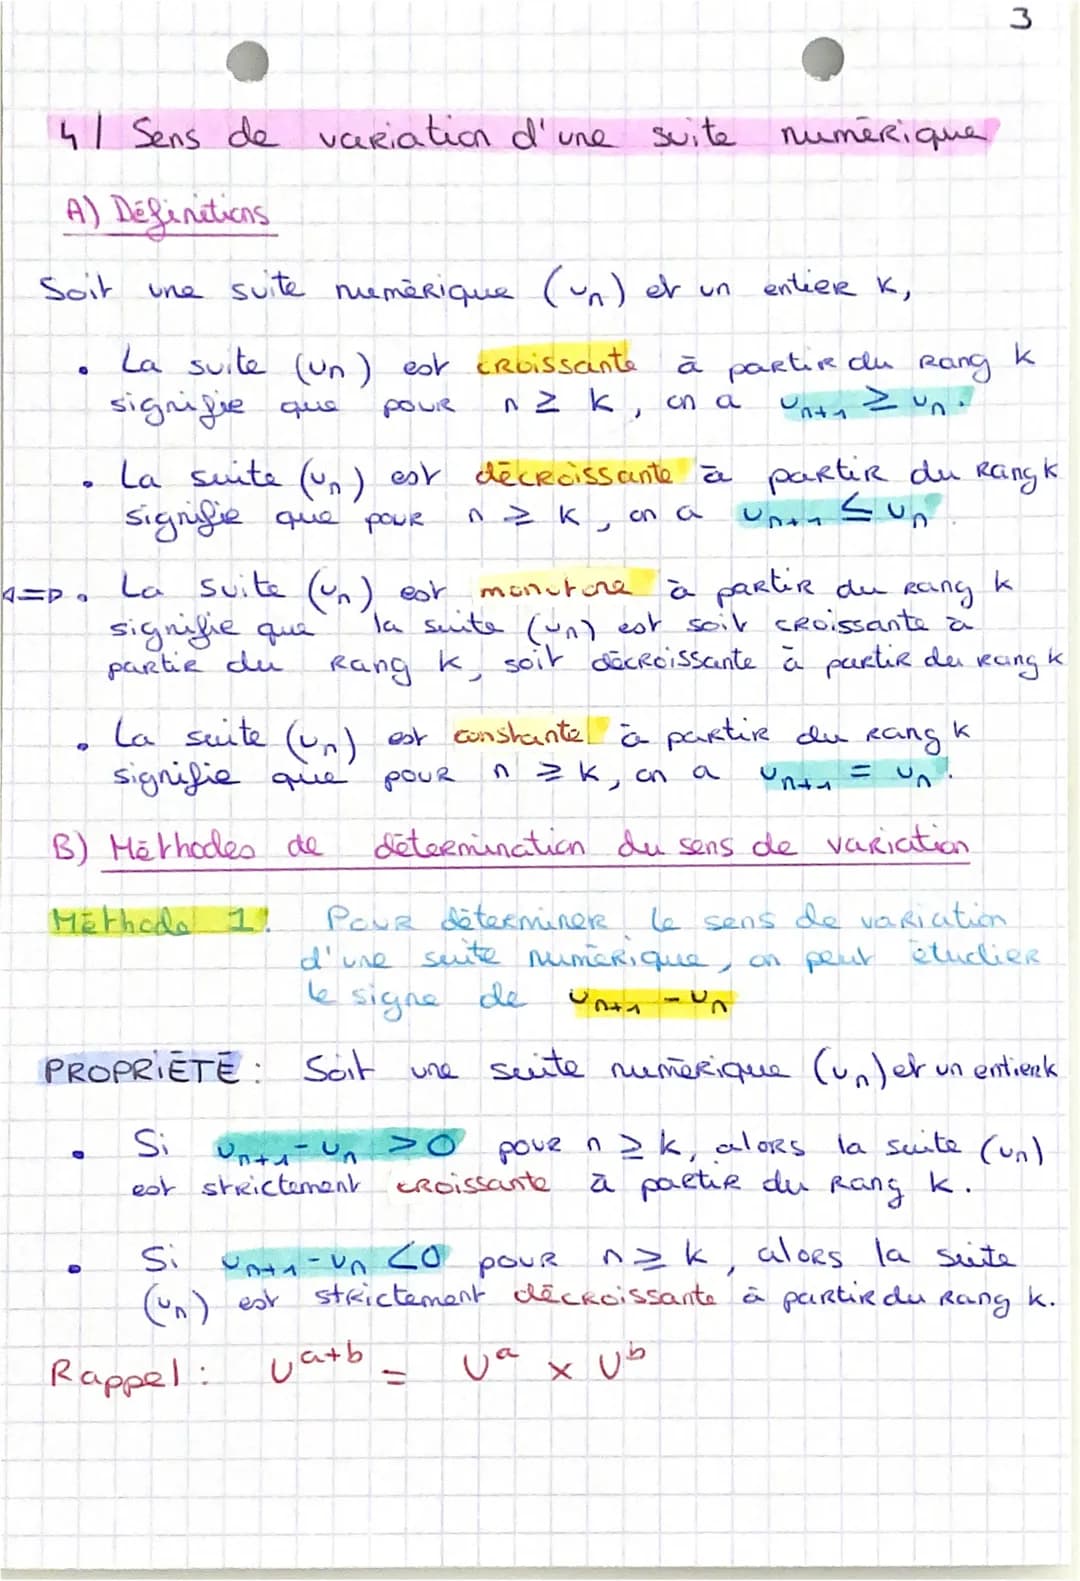 3
4/ Sens de variation d'une suite numérique
A) Définitions
Soit une suite numérique (un) et un entier k,
• La suite (un) est croissante à partir du rang k
signifie que pour n ≥ k, on a un+1 ≥ un.
• La suite (un) est décroissante à partir du rang k
signifie que pour n ≥ k, on a un+1 ≤ un.
• La suite (un) est monotone à partir du rang k
signifie que la suite (un) est soit croissante à
partir du rang k, soit décroissante à partir du rang k
• La suite (un) est constante à partir du rang k
signifie que pour n ≥ k, on a un+1 = un.
B) Méthodes de détermination du sens de variation
Méthode 1: Pour déterminer le sens de variation
d'une suite numérique, on peut étudier
le signe de un+1 - un
PROPRIÉTÉ : Soit une suite numérique (un) et un entier k
• Si un+1 - un > 0 pour n ≥ k, alors la suite (un)
est strictement croissante à partir du rang k.
• Si un+1 - un < 0 pour n ≥ k, alors la suite
(un) est strictement décroissante à partir du rang k.
Rappel : U^a+b = U^a × U^b